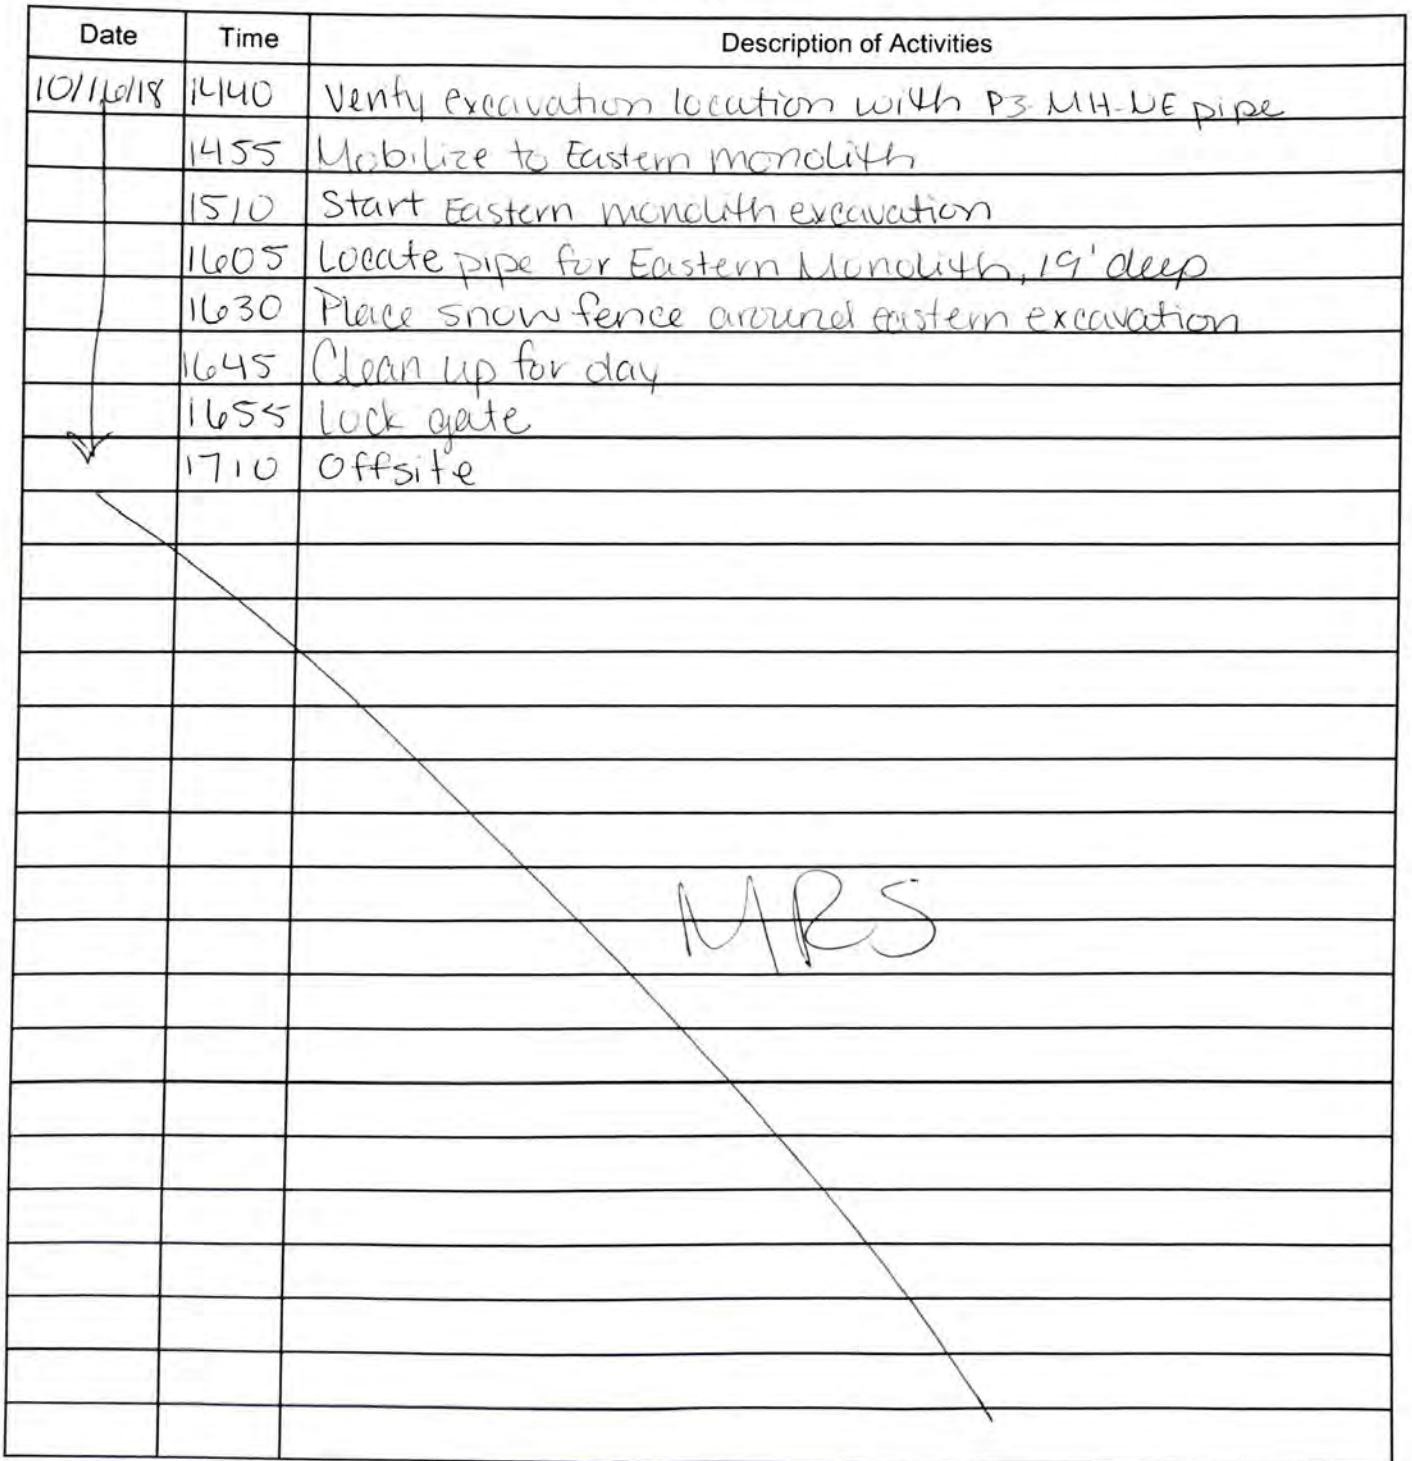 Date Time Description of Activities
10/16/18 1440 Verify excavation location with P3-MH-NE pipe
1455 Mobilize to Eastern monolith
1510 Start Eastern monolith excavation
1605 Locate pipe for Eastern Monolith, 19' deep
1630 Place snow fence around eastern excavation
1645 Clean up for day
1655 Lock gate
1710 Offsite
MRS